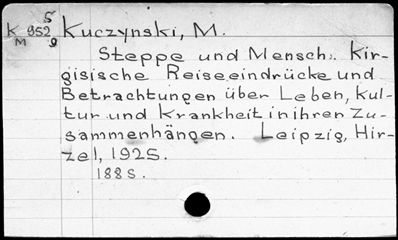 5
K 952 Kuczynski, M.
M 9
Steppe und Mensch. Kir-
gisische Reiseeindrücke und
Betrachtungen über Leben, Kul-
tur und Krankheit in ihren Zu-
sammenhängen. Leipzig, Hir-
zel, 1925.
188 S.